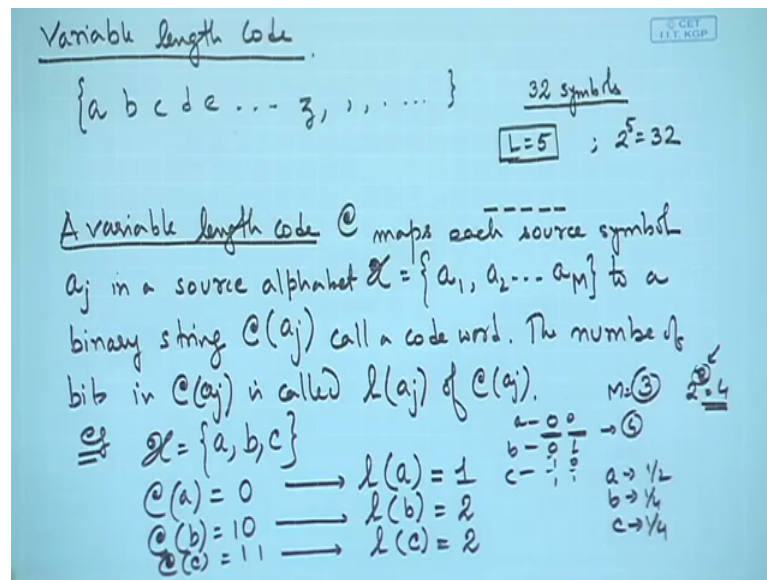 Variable length code
© CET
I.I.T. KGP
{a b c d e ... z, ; , . ... }
32 symbols
L=5 ; 2^5=32
A variable length code C maps each source symbol
aj in a source alphabet X = {a1, a2 ... aM} to a
binary string C(aj) call a code word. The number of
bits in C(aj) is called l(aj) of C(aj).
M=3 2^2=4
eg X = {a, b, c}
C(a) = 0 → l(a) = 1
C(b) = 10 → l(b) = 2
C(c) = 11 → l(c) = 2
a - 0 0
b - 0 1
c - 1 0
1 1
a → 1/2
b → 1/4
c → 1/4